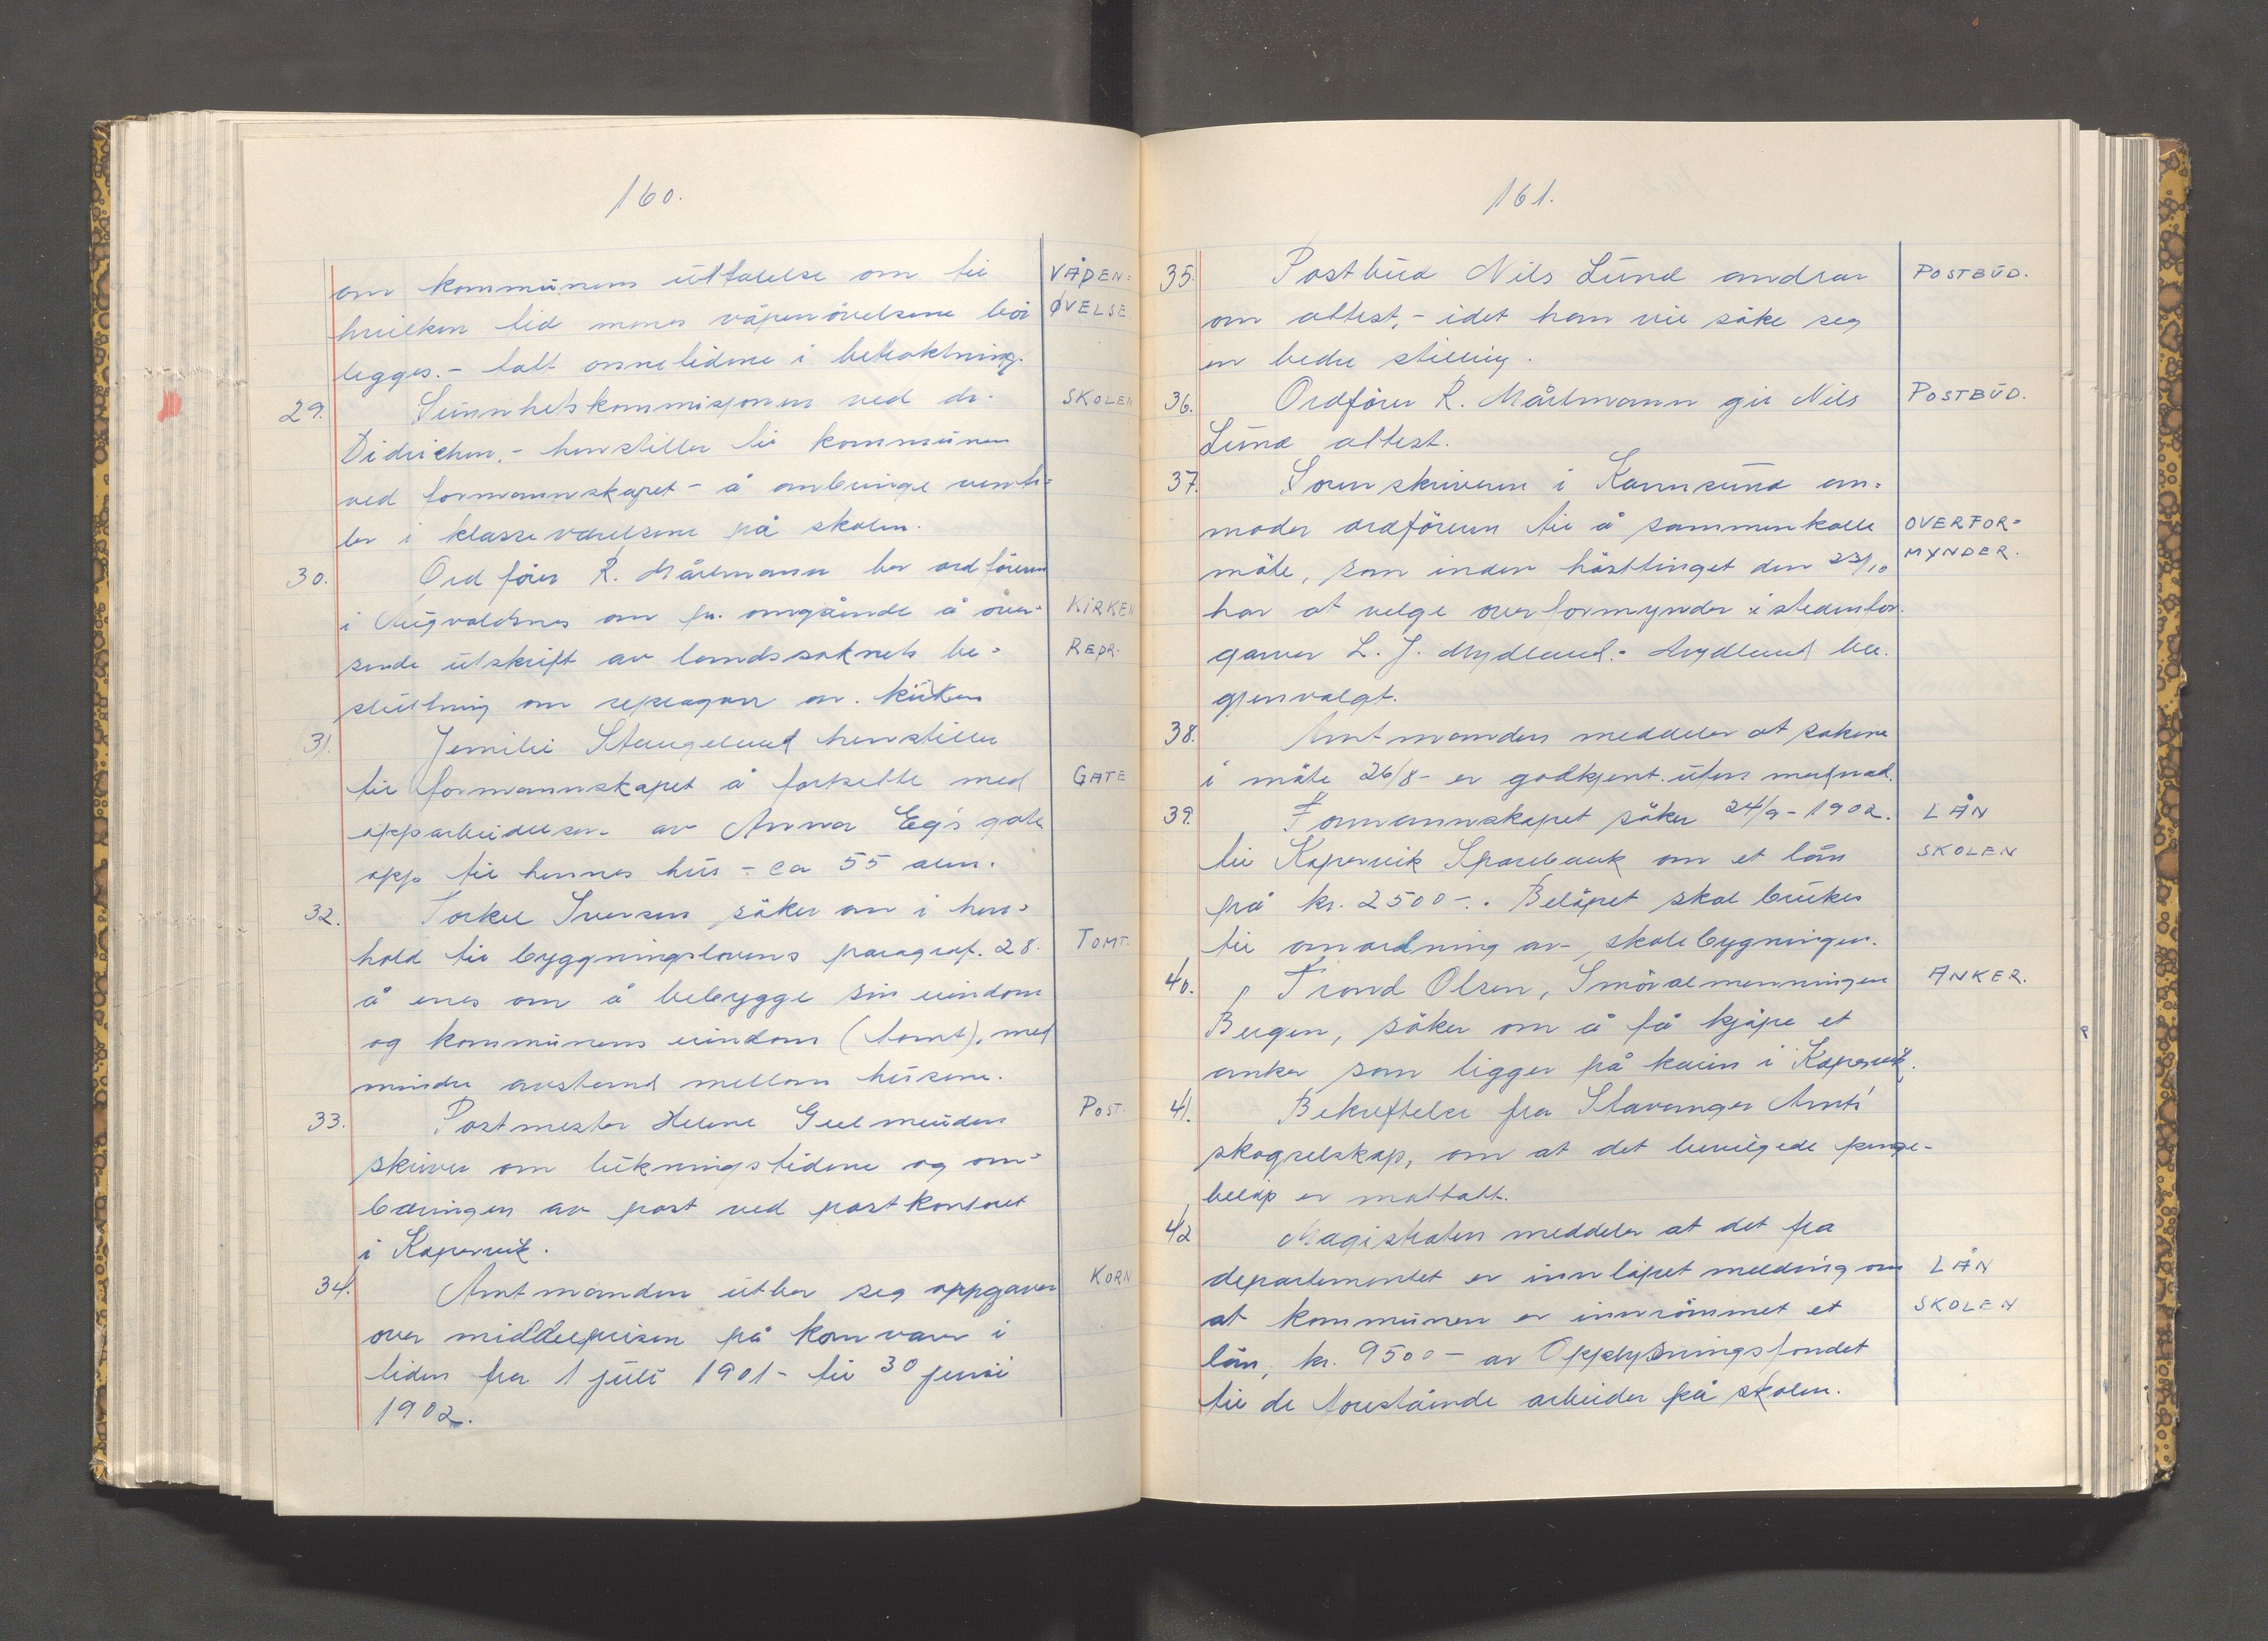 160.
om kommunens uttalelse om til VÅPEN=
hvilken tid menes våpenövelsene bör ØVELSE
legges. - tatt onnetidene i betraktning.
29. Sunnhetskommisjonen ved dr. SKOLEN
Didrichsen, - henstiller til kommunen
ved formannskapet - å anbringe venti=
ler i klasseværelsene på skolen.
30. Ordförer R. Mårlmann ber ordföreren
i Augvaldsnes om pr. omgående å over= KIRKEN
sende utskrift av landssoknets be= REPR.
slutning om reprasjon av. kirken
31. Jemilie Stangeland henstiller
til formannskapet å fortsette med GATE
opparbeidelsen av Anna Eg's gate
opp til hennes hus - ca 55 alen.
32. Torkel Iversen söker om i hen=
hold til byggningslovens paragraf. 28. TOMT.
å enes om å bebygge sin eiendom
og kommunens eiendom (tomt), med
mindre avstand mellom husene.
33. Postmester Helene Geelmuiden POST.
skriver om lukningstidene og om=
bæringen av post ved postkontoret
i Kopervik.
34. Amtmanden utber seg oppgaver KORN
over middelprisen på kornvarer i
tiden fra 1 juli 1901 - til 30 juni
1902.
161.
35. Postbud Nils Lund andrar POSTBUD.
om attest, - idet han vil söke seg
en bedre stilling.
36. Ordförer R. Mårlmann gir Nils POSTBUD.
Lund attest.
37. Sorenskriveren i Karmsund an=
moder ordföreren til å sammenkalle OVERFOR=
möte, som inden hösttinget den 23/10 MYNDER.
har at velge overformynder istedenfor
garver L. J. Mydland. - Mydland ble
gjenvalgt.
38. Amtmanden meddeler at sakene
i möte 26/8 - er godkjent uten merknad.
39. Formannskapet söker 24/9 - 1902. LÅN
til Kopervik Sparebank om et lån SKOLEN
på kr. 2500 -. Belöpet skal brukes
til omordning av skolebygningen.
40. Trond Olsen, Smöralmenningen ANKER.
Bergen, söker om å få kjöpe et
anker som ligger på kaien i Kopervik.
41. Bekreftelse fra Stavanger Amts
skogselskap, om at det bevilgede penge-
belöp er mottatt.
42 Magistraten meddeler at det fra
departementet er innlöpet melding om LÅN
at kommunen er innrömmet et SKOLEN
lån, kr. 9500 - av Opplysningsfondet
til de forestående arbeider på skolen.